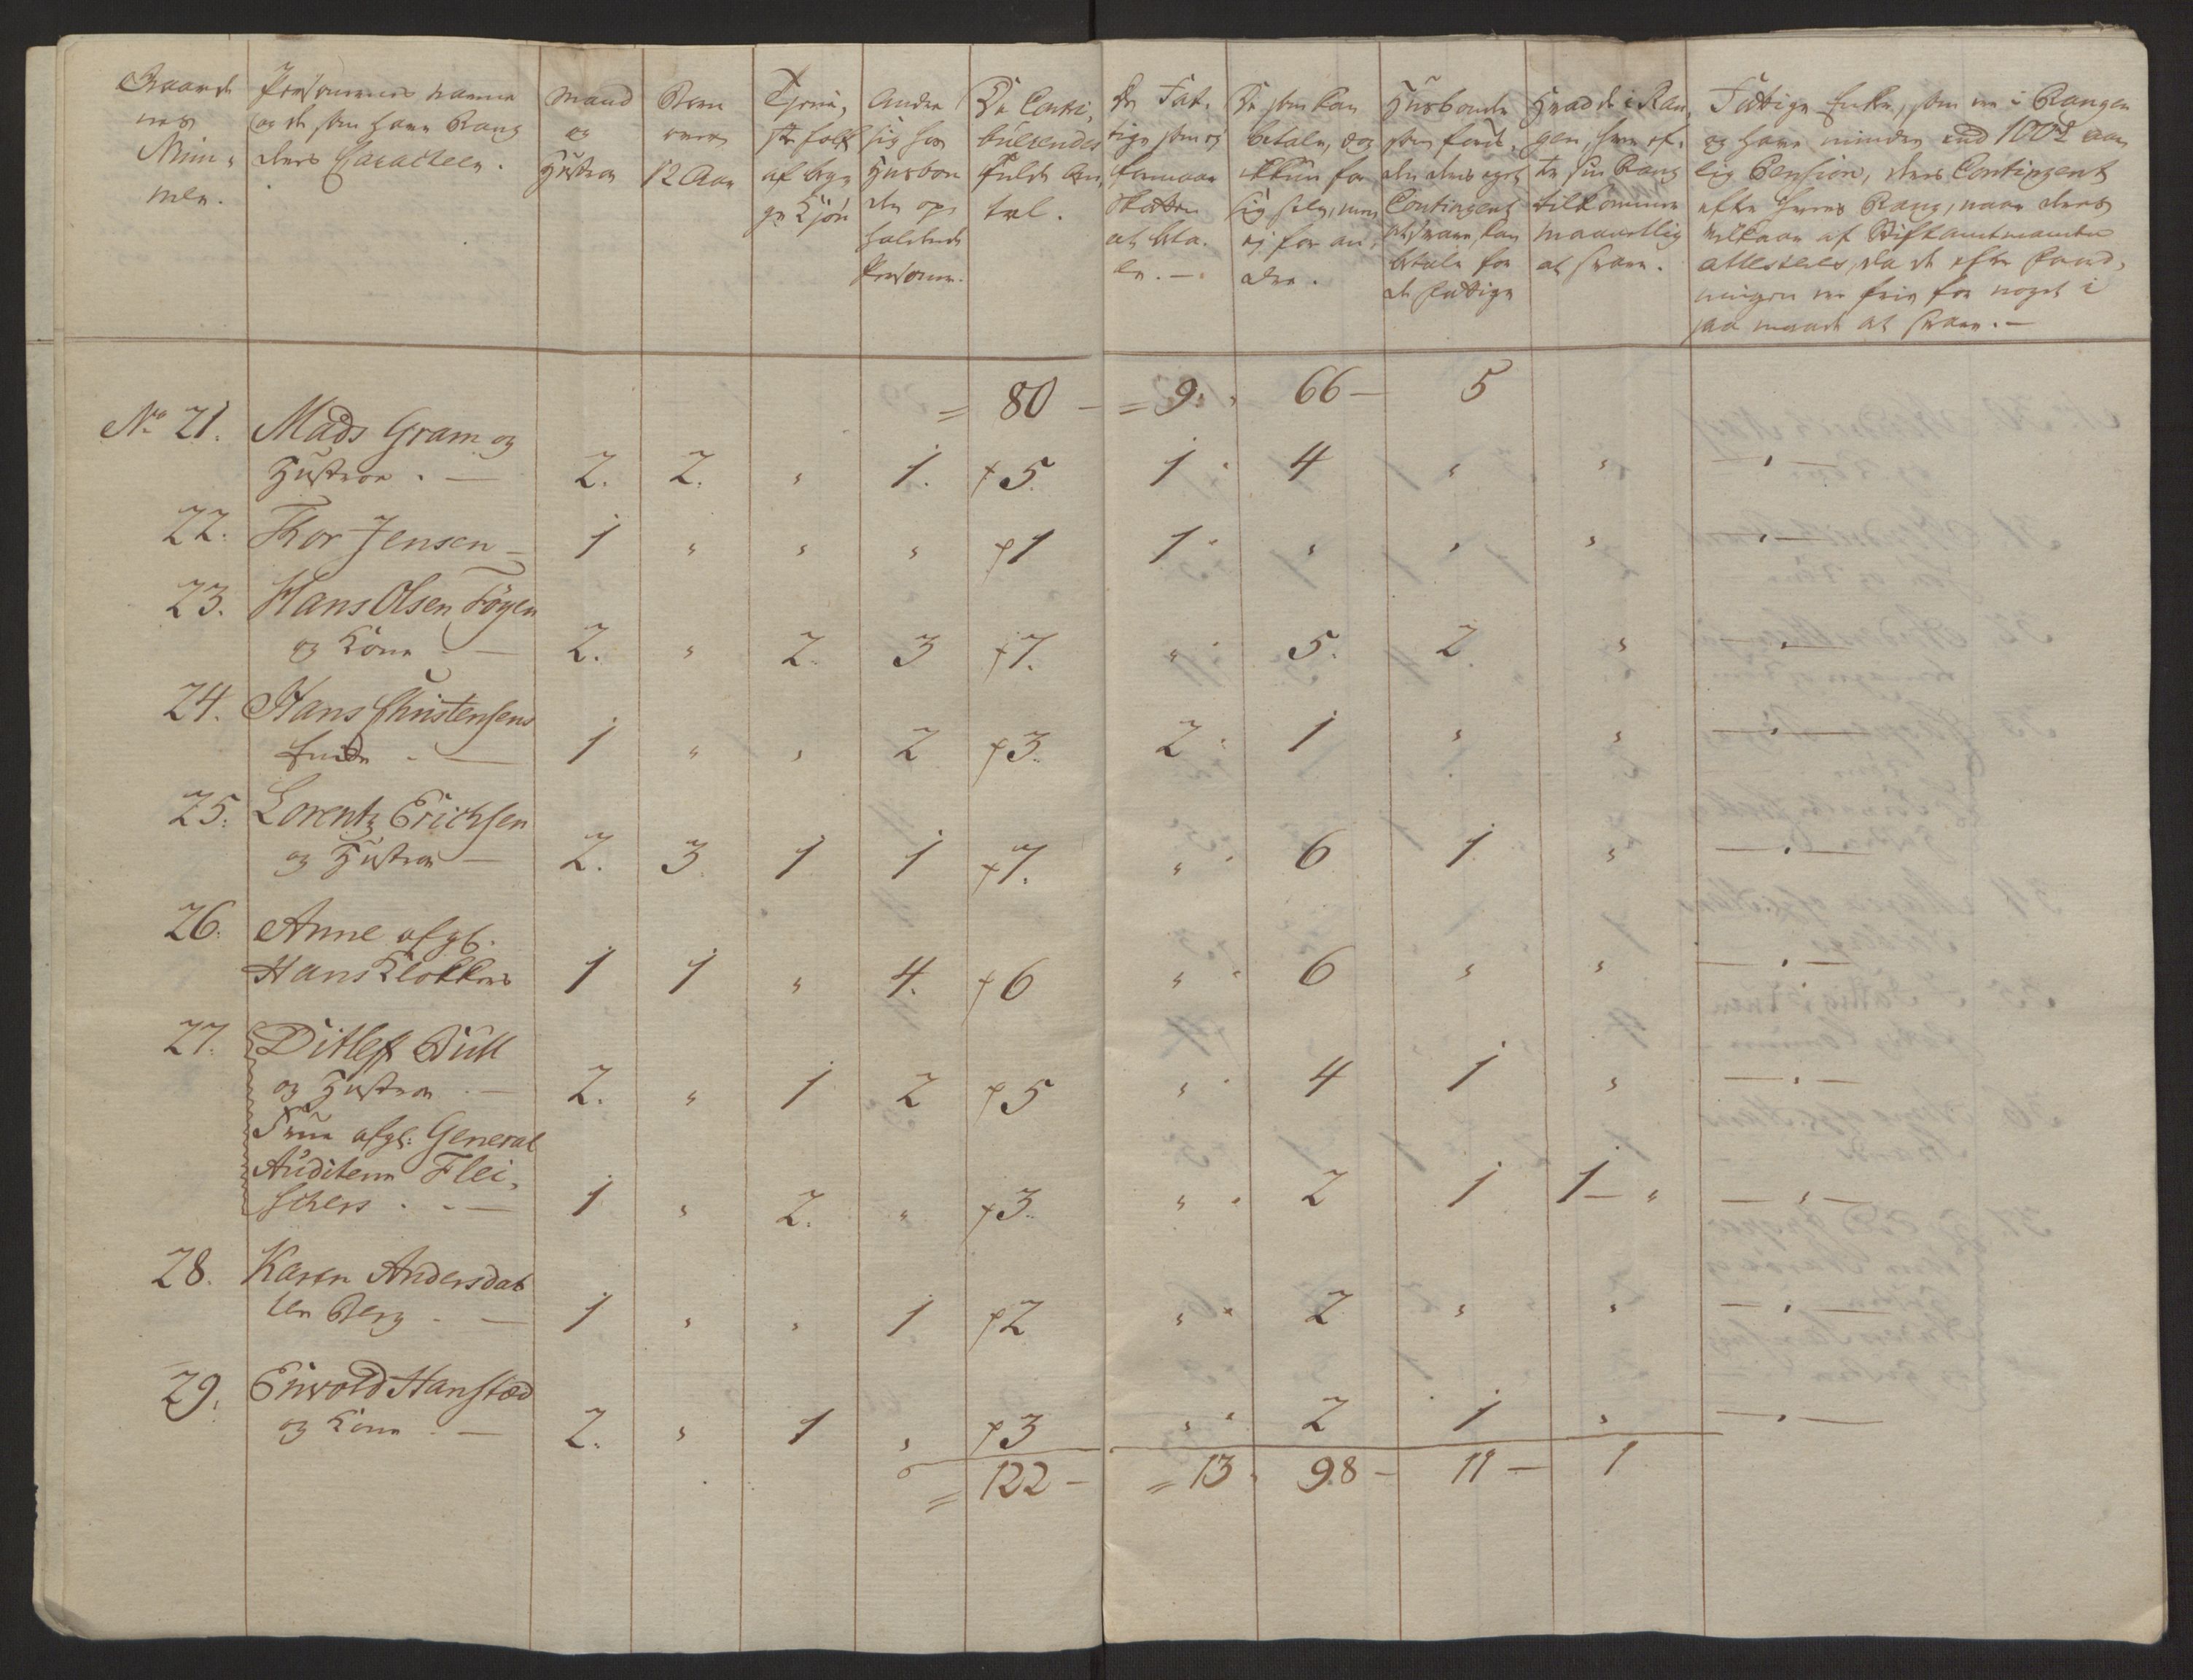 Gaarde
nes
Num-
mer.
Personernes Navne
og de som have Rang
deres Caracteer.
Mand
og
Hustroe
Børn
over
12 Aar
Tjeni-
ste folk
af beg
ge Kjøn
Andre
sig hos
Husbon
den op-
holdende
Personer.
De Contri-
buerendes
fulde An-
tal.
De Fat-
tige som ej
formaar
Skatten
at beta-
le. —
De som kan
betale, dog
ikkun for
sig selv, men
ej for an-
dre.
Husbonde
som foruden
deres eget
Contingent
at svare, kan
betale for
de fattige
Hvad de i Ran-
gen, have ef-
ter sin Rang
tilkommer
maanetlig
at svare.
Fattige Enker, som ere i Rangen
og have mindre end 100 rd aar
lig Pension, deres Contingent
efter hveres Rang, naar deres
Vilkaar af Stiftamtmanden
attesteres, da de efter
ere frie for noget i
saa maade at svare. —
= 80 — = 9. " 66 — 5
No 21. Mads Gram og
Hustroe . — 2. 2. " 1. 5. 1 " 4 " " — " —
22. Thor Jensen — 1 " " " 1 1 " " " " — " —
23. Hans Olsen Föyen
og Kone . — 2. " 2. 3 7. " " 5. 2 " — " —
24. Hans Christensens
Enke . — 1 " " 2 3. 2 " 1 " " — " —
25. Lorentz Erichsen
og Hustroe — 2. 3. 1 1 7. " " 6 1 " — " —
26. Anne afgl.
Hans Klokkers 1 1 " 4. 6 " " 6 " " — " —
27. Ditlef Bull
og Hustroe . — 2. " 1 2 5 " " 4 1 " — " —
Frue afgl: General
Auditeur Flei-
schers . . — 1 " 2. " 3. " " 2 1 1 — " — " —
28. Karen Andersdat
ter Berg . — 1 " " 1 2 " " 2 " " — " —
29. Eivold Hanstæd
og Kone . — 2. " 1 " 3 " " 2 1 " — " —
= 122 — = 13 " 98 — 11 — 1